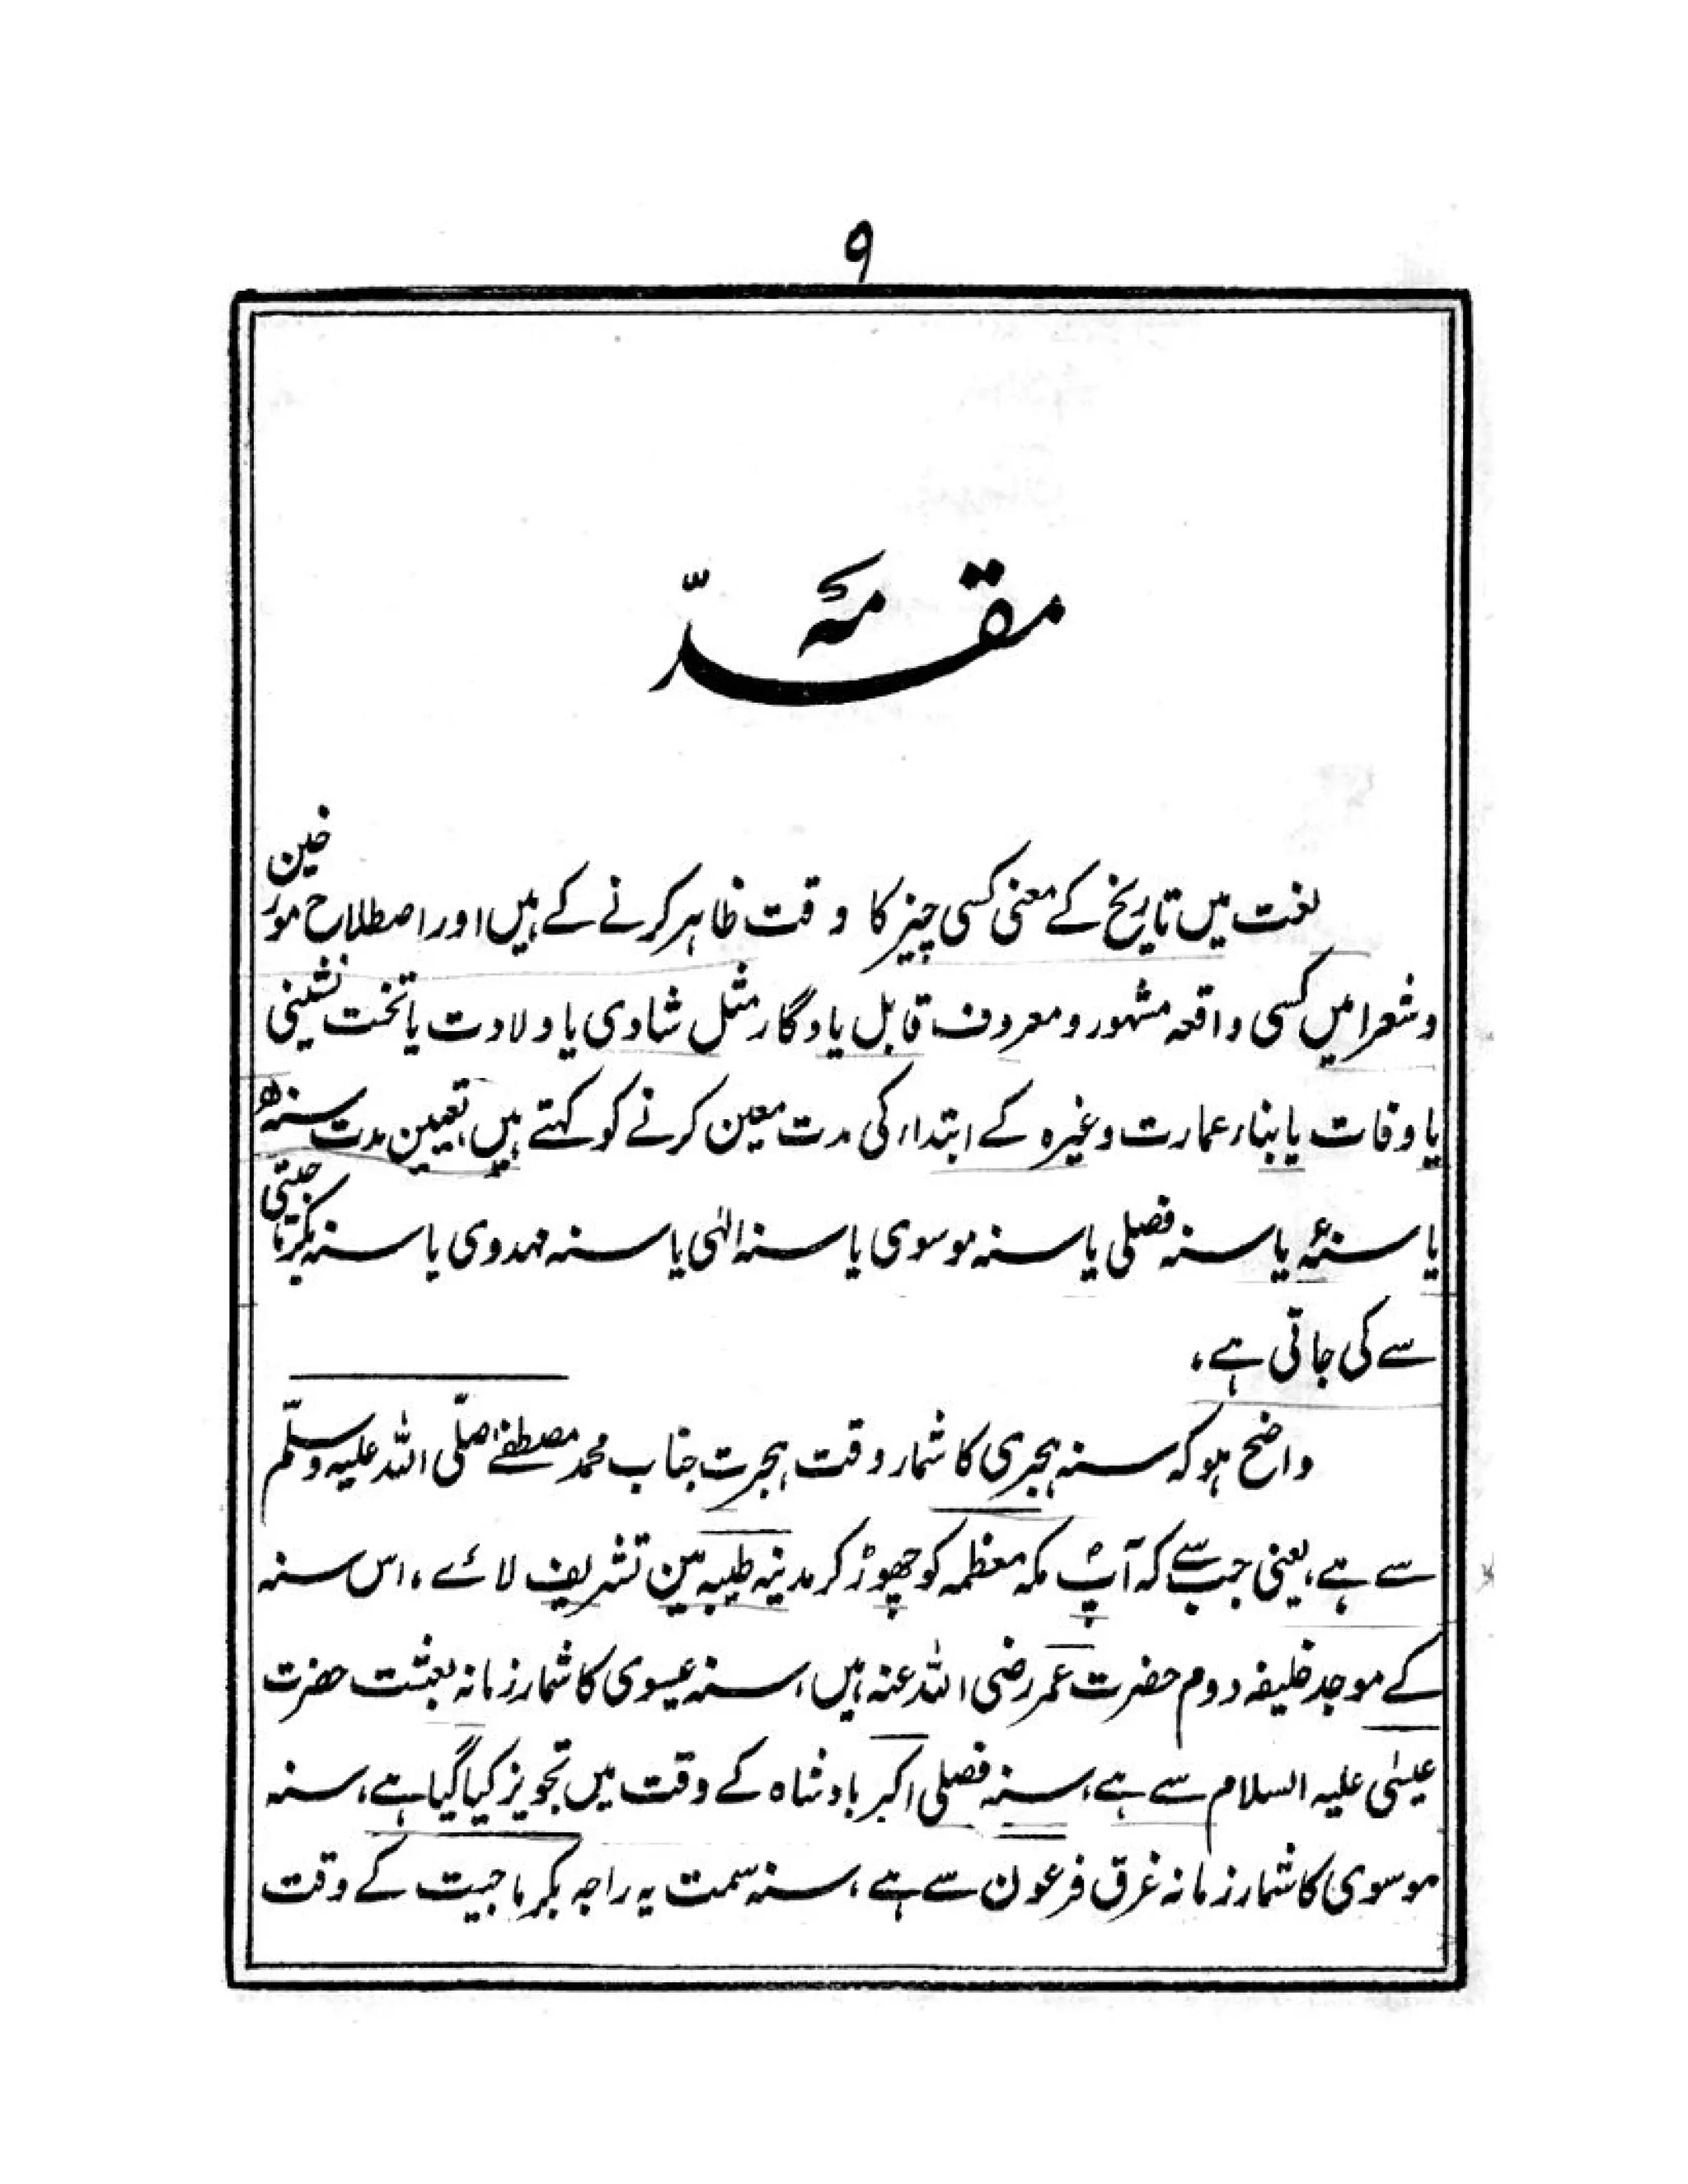 ۹
مقدّمہ
لغت میں تاریخ کے معنی کسی چیز کا وقت ظاہر کرنے کے ہیں اور اصطلاح مورخین
و شعرا میں کسی واقعہ مشہور و معروف قابل یادگار مثل شادی یا ولادت یا تخت نشینی
یا وفات یا بناء عمارت وغیرہ کے ابتداء کی مدت معین کرنے کو کہتے ہیں، تعیین مدت سنہ ھ
یا سنہ ء یا سنہ فصلی یا سنہ موسوی یا سنہ الٰہی یا سنہ مہدوی یا سنہ بکرماجیتی
سے کی جاتی ہے،
واضح ہو کہ سنہ ہجری کا شمار وقت ہجرت جناب محمد مصطفےٰ صلّی اللہ علیہ وسلّم
سے ہے، یعنی جب سے کہ آپؐ مکہ معظمہ کو چھوڑ کر مدینہ طیبہ مین تشریف لائے، اس سنہ
کے موجد خلیفہ دوم حضرت عمر رضی اللہ عنہ ہیں، سنہ عیسوی کا شمار زمانہ بعثت حضرت
عیسٰی علیہ السلام سے ہے، سنہ فصلی اکبر بادشاہ کے وقت میں تجویز کیا گیا ہے، سنہ
موسوی کا شمار زمانہ غرق فرعون سے ہے، سنہ سمت یہ راجہ بکرماجیت کے وقت